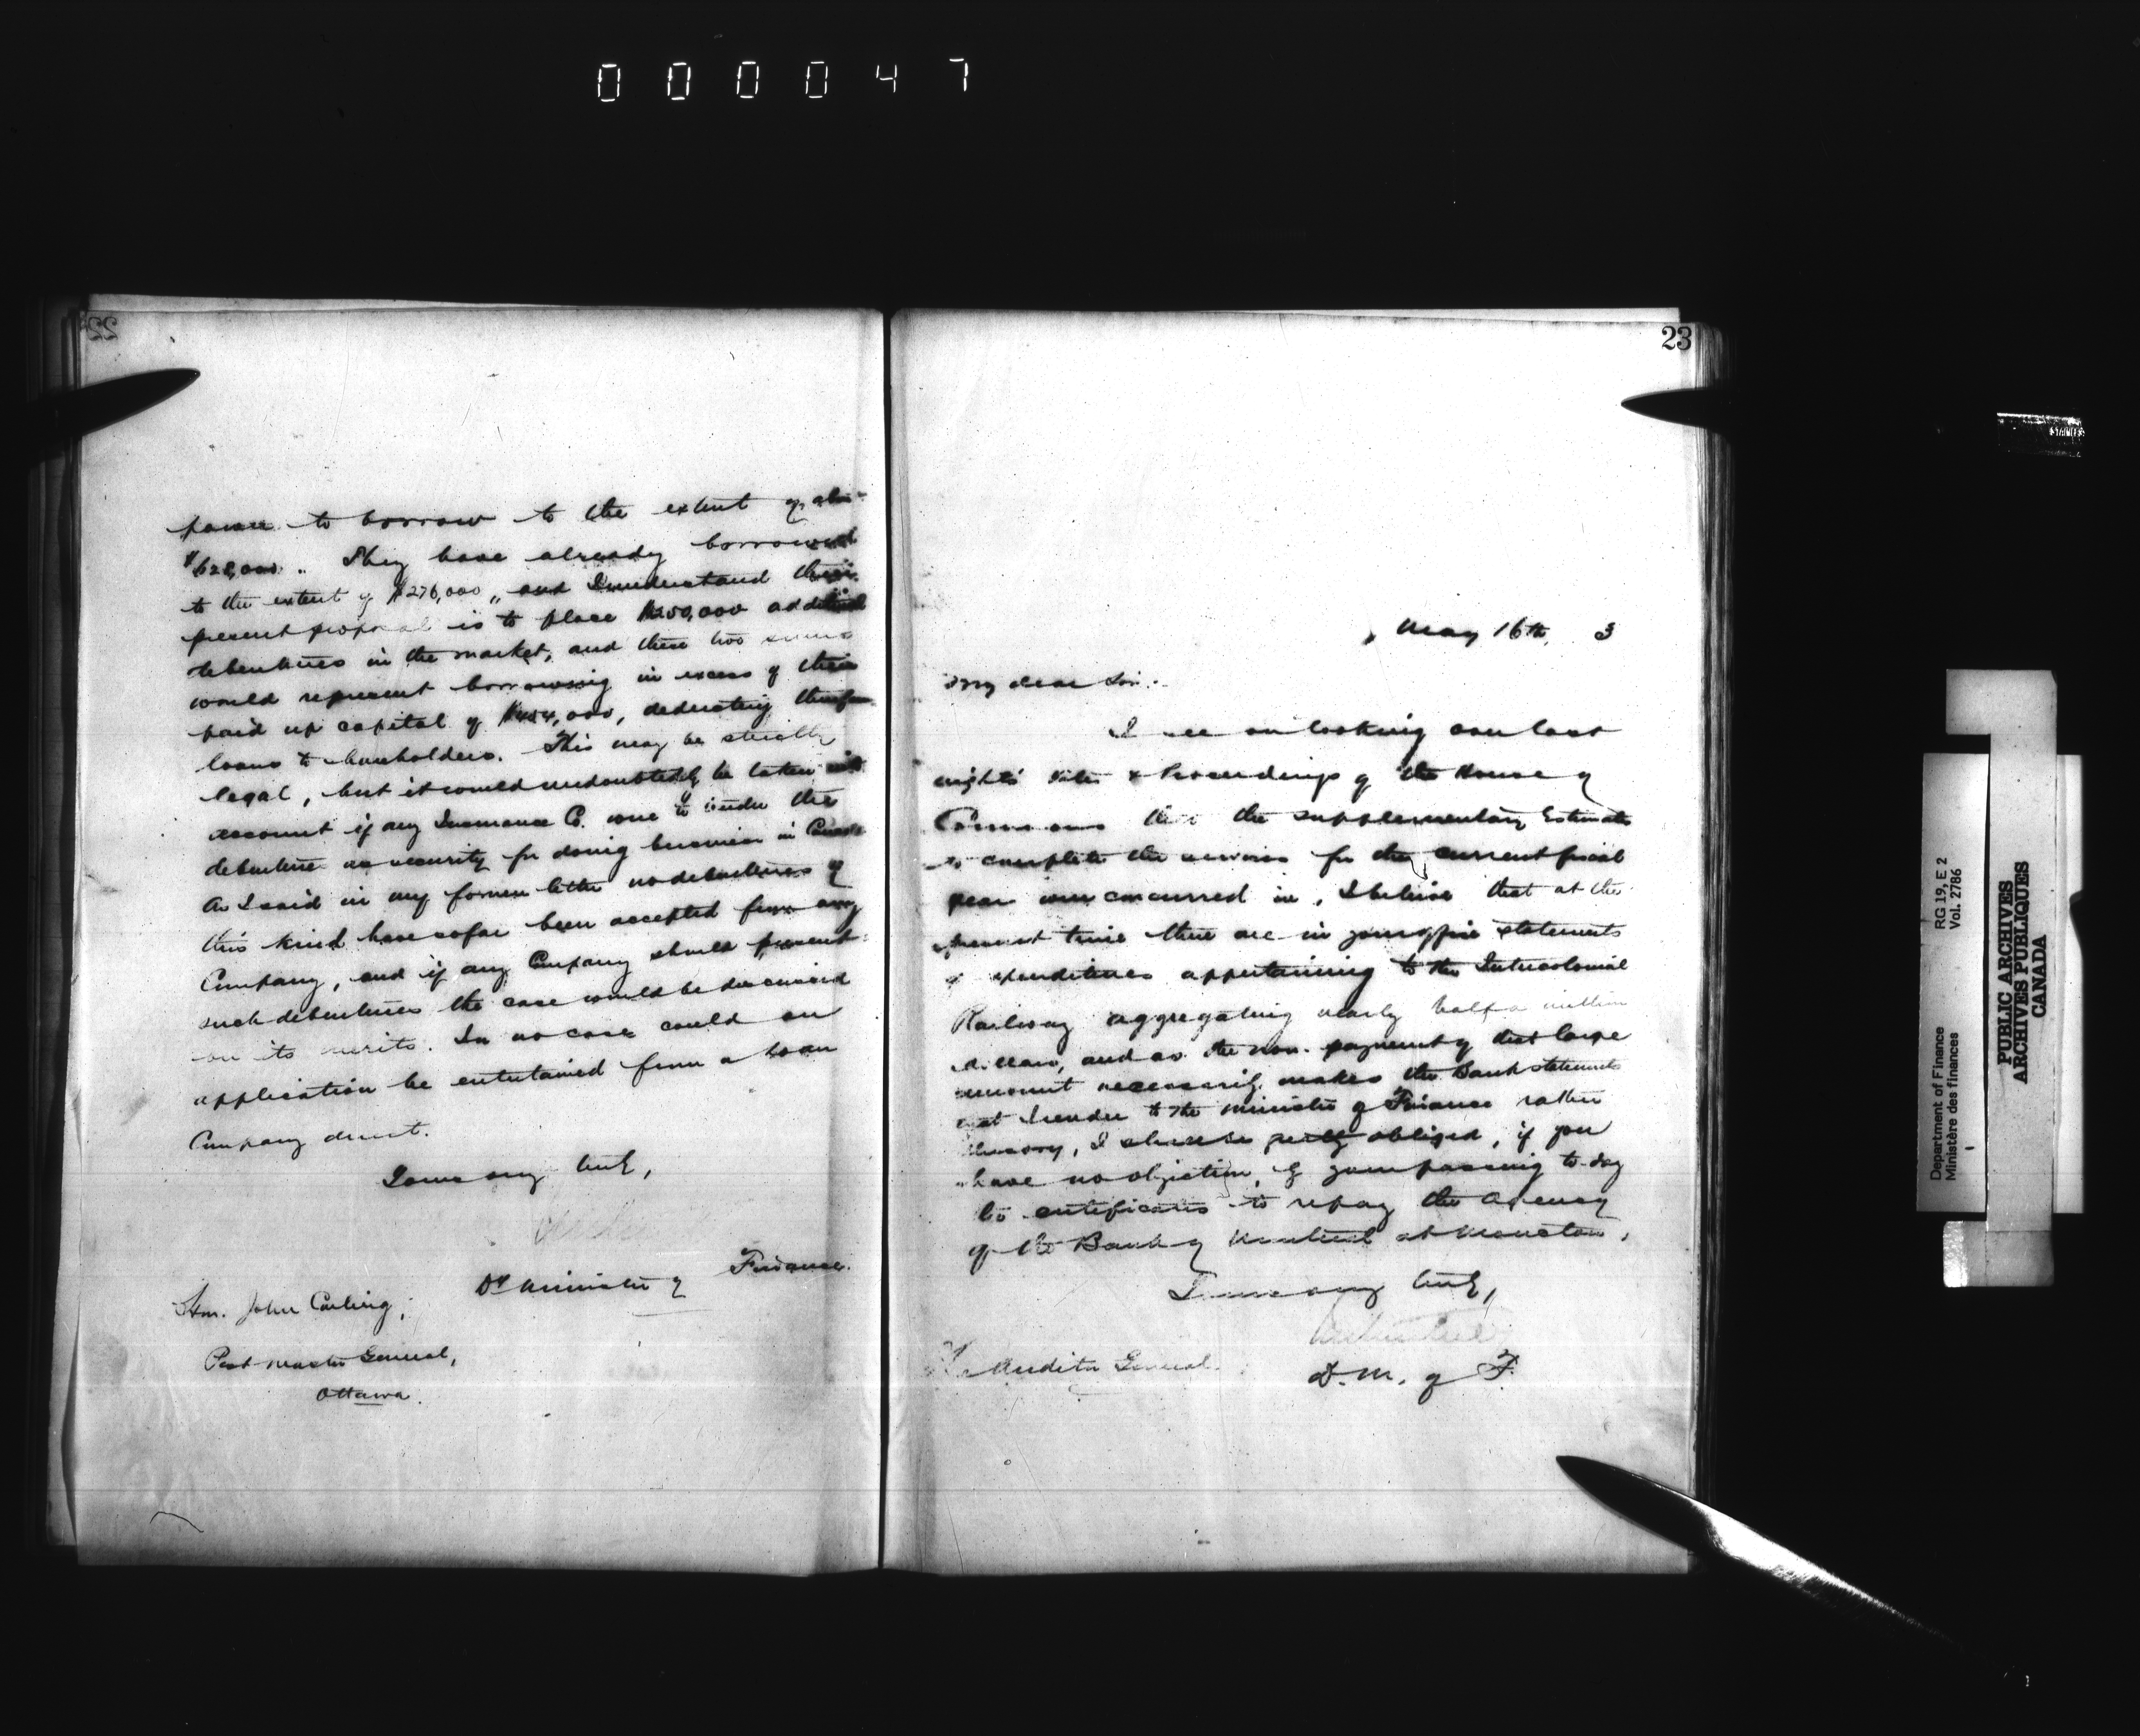 000047
22
power to borrow to the extent of
$628,000. They have already borrowed
to the extent of $276,000, and I understand their
present proposal is to place $250,000 additional
debentures in the market, and these two sums
would represent borrowing in excess of their
paid up capital of $454,000, deducting
loans to shareholders. This may be strictly
legal, but it would undoubtedly be taken into
account if any Insurance Co. were to tender the
debenture as security for doing business in Canada
As I said in my former letter no debentures of
this kind have so far been accepted from any
Company, and if any Company should present
such debentures the case would be discussed
on its merits. In no case could an
application be entertained from a Loan
Company direct.
Yours very truly,
Dy Minister of Finance.
Hon. John Carling,
Post Master General,
Ottawa.
23
May 16th, 3
My dear Sir:-
I see on looking over last
night's Votes & Proceedings of the House of
Commons that the supplementary Estimates
to complete the services for the current fiscal
year were concurred in, I believe that at the
present time there are in your office statements
of expenditures appertaining to the Intercolonial
Railway aggregating nearly half a million
dollars, and as the non-payment of that large
amount necessarily makes the Bank statements
that I render to the Minister of Finance rather
, I should be greatly obliged, if you
have no objection, of your passing to-day
the certificates to repay the Agency
of the Bank of Montreal at Moncton,
Yours very truly,
D. M. of F.
Auditor General.
RG 19, E 2
Vol. 2786
Department of Finance
Ministère des finances
PUBLIC ARCHIVES
ARCHIVES PUBLIQUES
CANADA